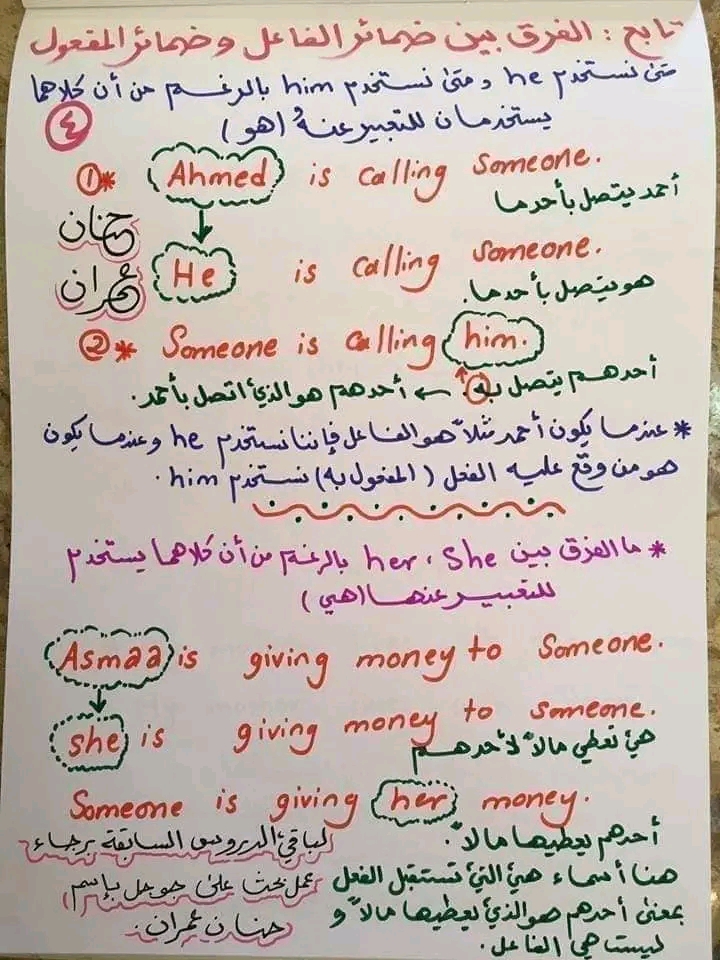 تابع : الفرق بين ضمائر الفاعل و ضمائر المفعول
متى نستخدم he و متى نستخدم him بالرغم من أن كلاهما
يستخدمان للتعبير عنه (هو)
٤
① * Ahmed is calling someone.
أحمد يتصل بأحد ما
حنان
عمران
He is calling someone.
هو يتصل بأحد ما.
② * Someone is calling him.
أحدهم يتصل به. ← أحدهم هو الذي اتصل بأحمد.
* عندما يكون أحمد مثلاً هو الفاعل فإننا نستخدم he وعندما يكون
هو من وقع عليه الفعل (المفعول به) نستخدم him.
* ما الفرق بين she ، her بالرغم من أن كلاهما يستخدم
للتعبير عنها (هي)
Asmaa is giving money to someone.
she is giving money to someone.
هي تعطي مالاً لأحدهم
Someone is giving her money.
أحدهم يعطيها مالاً.
هنا أسماء هي التي تستقبل الفعل
بمعنى أحدهم هو الذي يعطيها مالاً و
ليست هي الفاعل.
لباقي الدروس السابقة برجاء
عمل بحث على جوجل بإسم
حنان عمران.